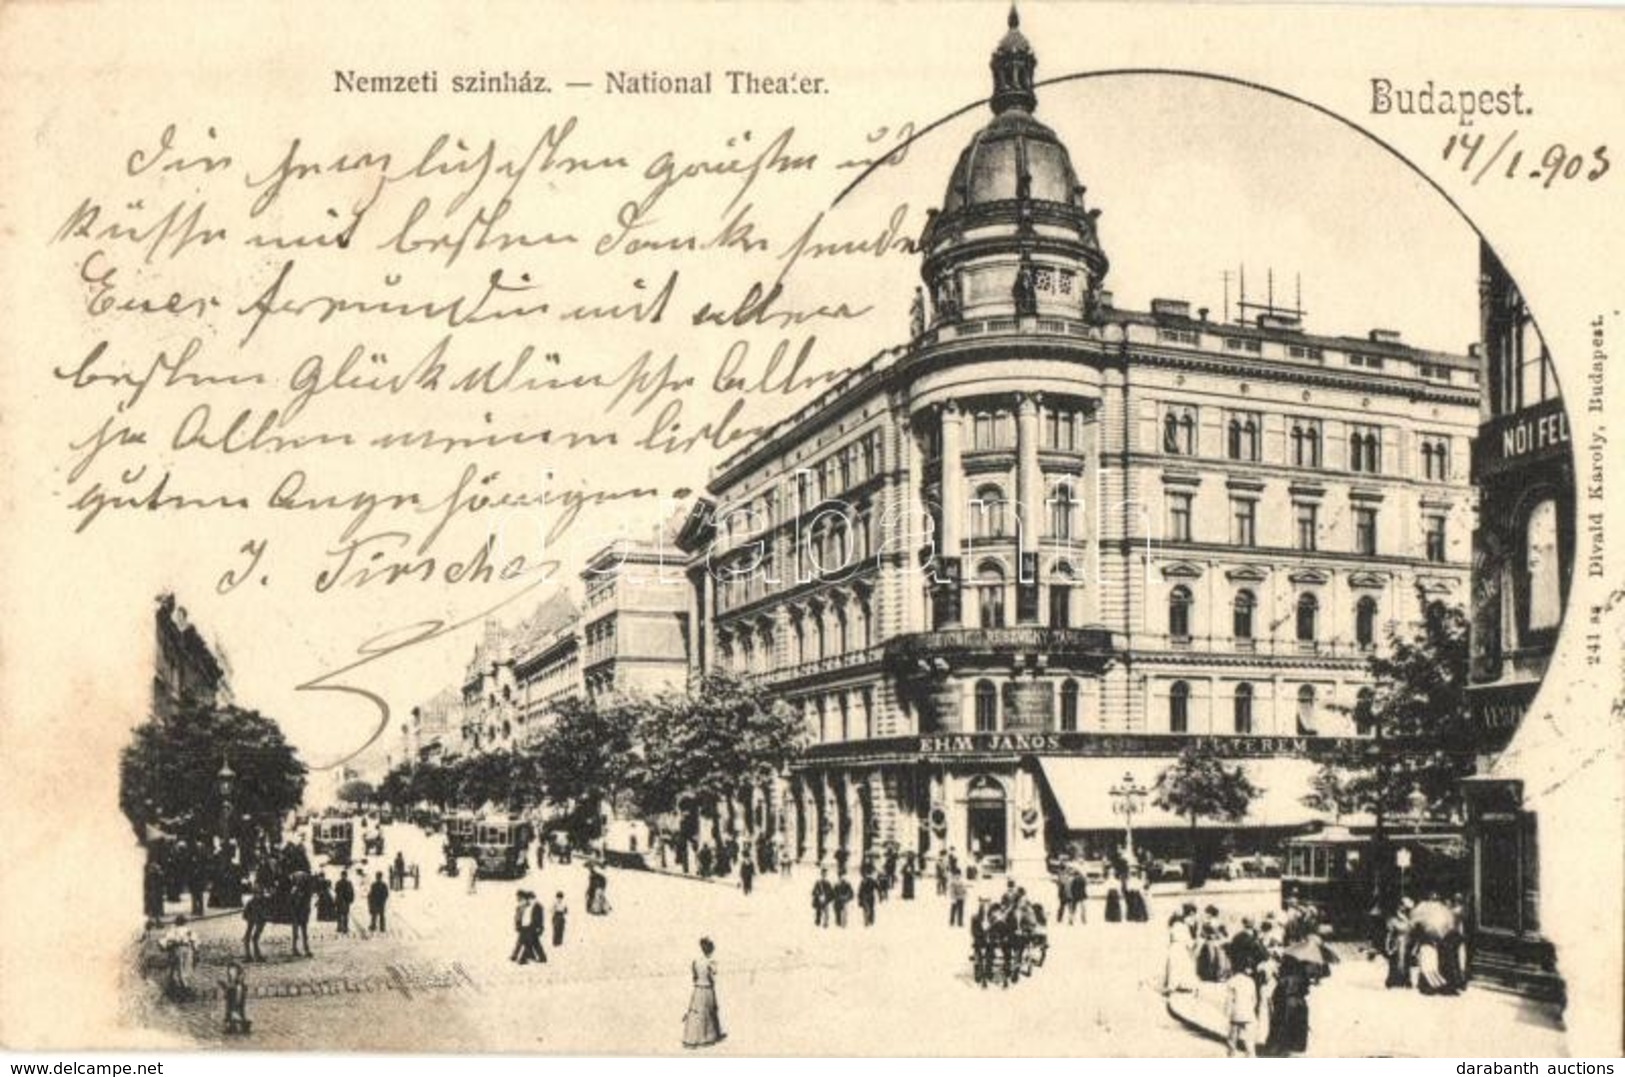 Nemzeti szinház. — National Theater.
Budapest.
14/1. 903
Die herzlichsten Grüsse u.
Küsse mit besten Danke sende
Euer Freundin mit allen
besten Glück Wünsche Allen
ja Allen meinen lieben
guten Angehörigen.
J. Tirscher
darabanth
NŐI FEL
EHM JÁNOS
ÉTTEREM
241 sz Divald Károly, Budapest.
www.delcampe.net
darabanth auctions